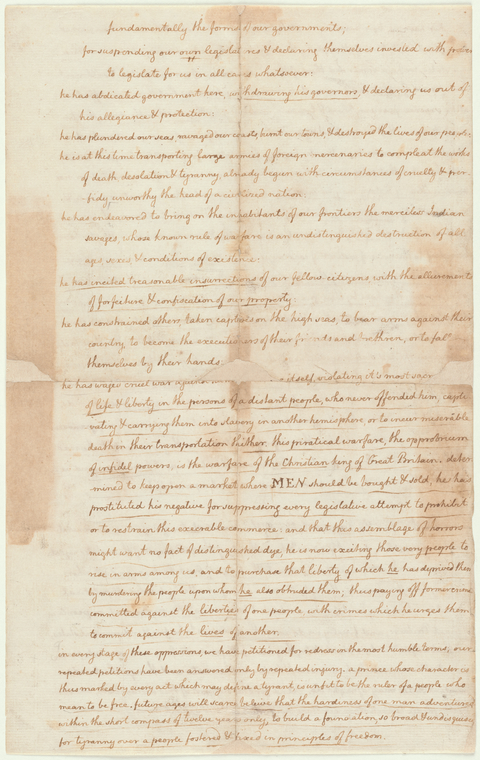 fundamentally the forms of our governments;
for suspending our own legislatures & declaring themselves invested with power
to legislate for us in all cases whatsoever:
he has abdicated government here, withdrawing his governors, & declaring us out of
his allegiance & protection:
he has plundered our seas, ravaged our coasts, burnt our towns, & destroyed the lives of our people:
he is at this time transporting large armies of foreign mercenaries to compleat the works
of death, desolation & tyranny, already begun with circumstances of cruelty & per-
fidy unworthy the head of a civilized nation:
he has endeavored to bring on the inhabitants of our frontiers the merciless Indian
savages, whose known rule of warfare is an undistinguished destruction of all
ages, sexes, & conditions of existence:
he has incited treasonable insurrections of our fellow-citizens, with the allurements
of forfeiture & confiscation of our property:
he has constrained others, taken captives on the high seas, to bear arms against their
country, to become the executioners of their friends and brethren, or to fall
themselves by their hands:
he has waged cruel war against itself, violating it's most
of life & liberty in the persons of a distant people, who never offended him, capti-
vating & carrying them into slavery in another hemisphere, or to incur miserable
death in their transportation thither. this piratical warfare, the opprobrium
of infidel powers, is the warfare of the Christian king of Great Britain. deter-
mined to keep open a market where MEN should be bought & sold, he has
prostituted his negative for suppressing every legislative attempt to prohibit
or to restrain this execrable commerce: and that this assemblage of horrors
might want no fact of distinguished dye, he is now exciting those very people to
rise in arms among us, and to purchase that liberty of which he has deprived them
by murdering the people upon whom he also obtruded them; thus paying off former crimes
committed against the liberties of one people with crimes which he urges them
to commit against the lives of another.
in every stage of these oppressions, we have petitioned for redress in the most humble terms; our
repeated petitions have been answered only by repeated injury. a prince whose character is
thus marked by every act which may define a tyrant, is unfit to be the ruler of a people who
mean to be free. future ages will scarce believe that the hardiness of one man adventured
within the short compass of twelve years only, to build a foundation, so broad & undisguised
for tyranny over a people fostered & fixed in principles of freedom.